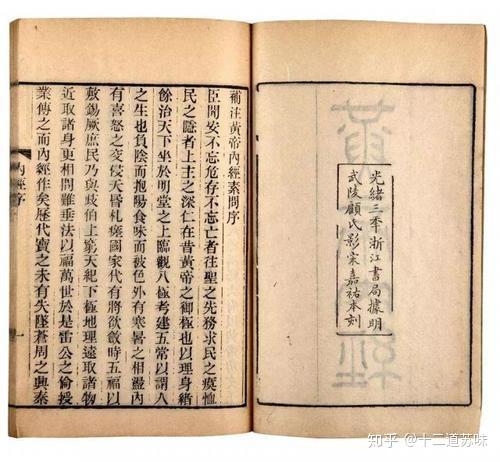 光緒三年浙江書局據明
武陵顧氏影宋嘉祐本刻
補注黃帝內經素問序
臣聞安不忘危存不忘亡者往聖之先務求民之瘼恤
民之隱者上主之深仁在昔黃帝之御極也以理身緒
餘治天下坐於明堂之上臨觀八極考建五常以謂人
之生也負陰而抱陽食味而被色外有寒暑之相盪內
有喜怒之交侵夭昏札瘥國家代有將欲斂時五福以
敷錫厥庶民乃與歧伯上窮天紀下極地理遠取諸物
近取諸身更相問難垂法以福萬世於是雷公之倫授
業傳之而內經作矣歷代寶之未有失墜蒼周之興秦
內經序
一
知乎 @十二道苏味